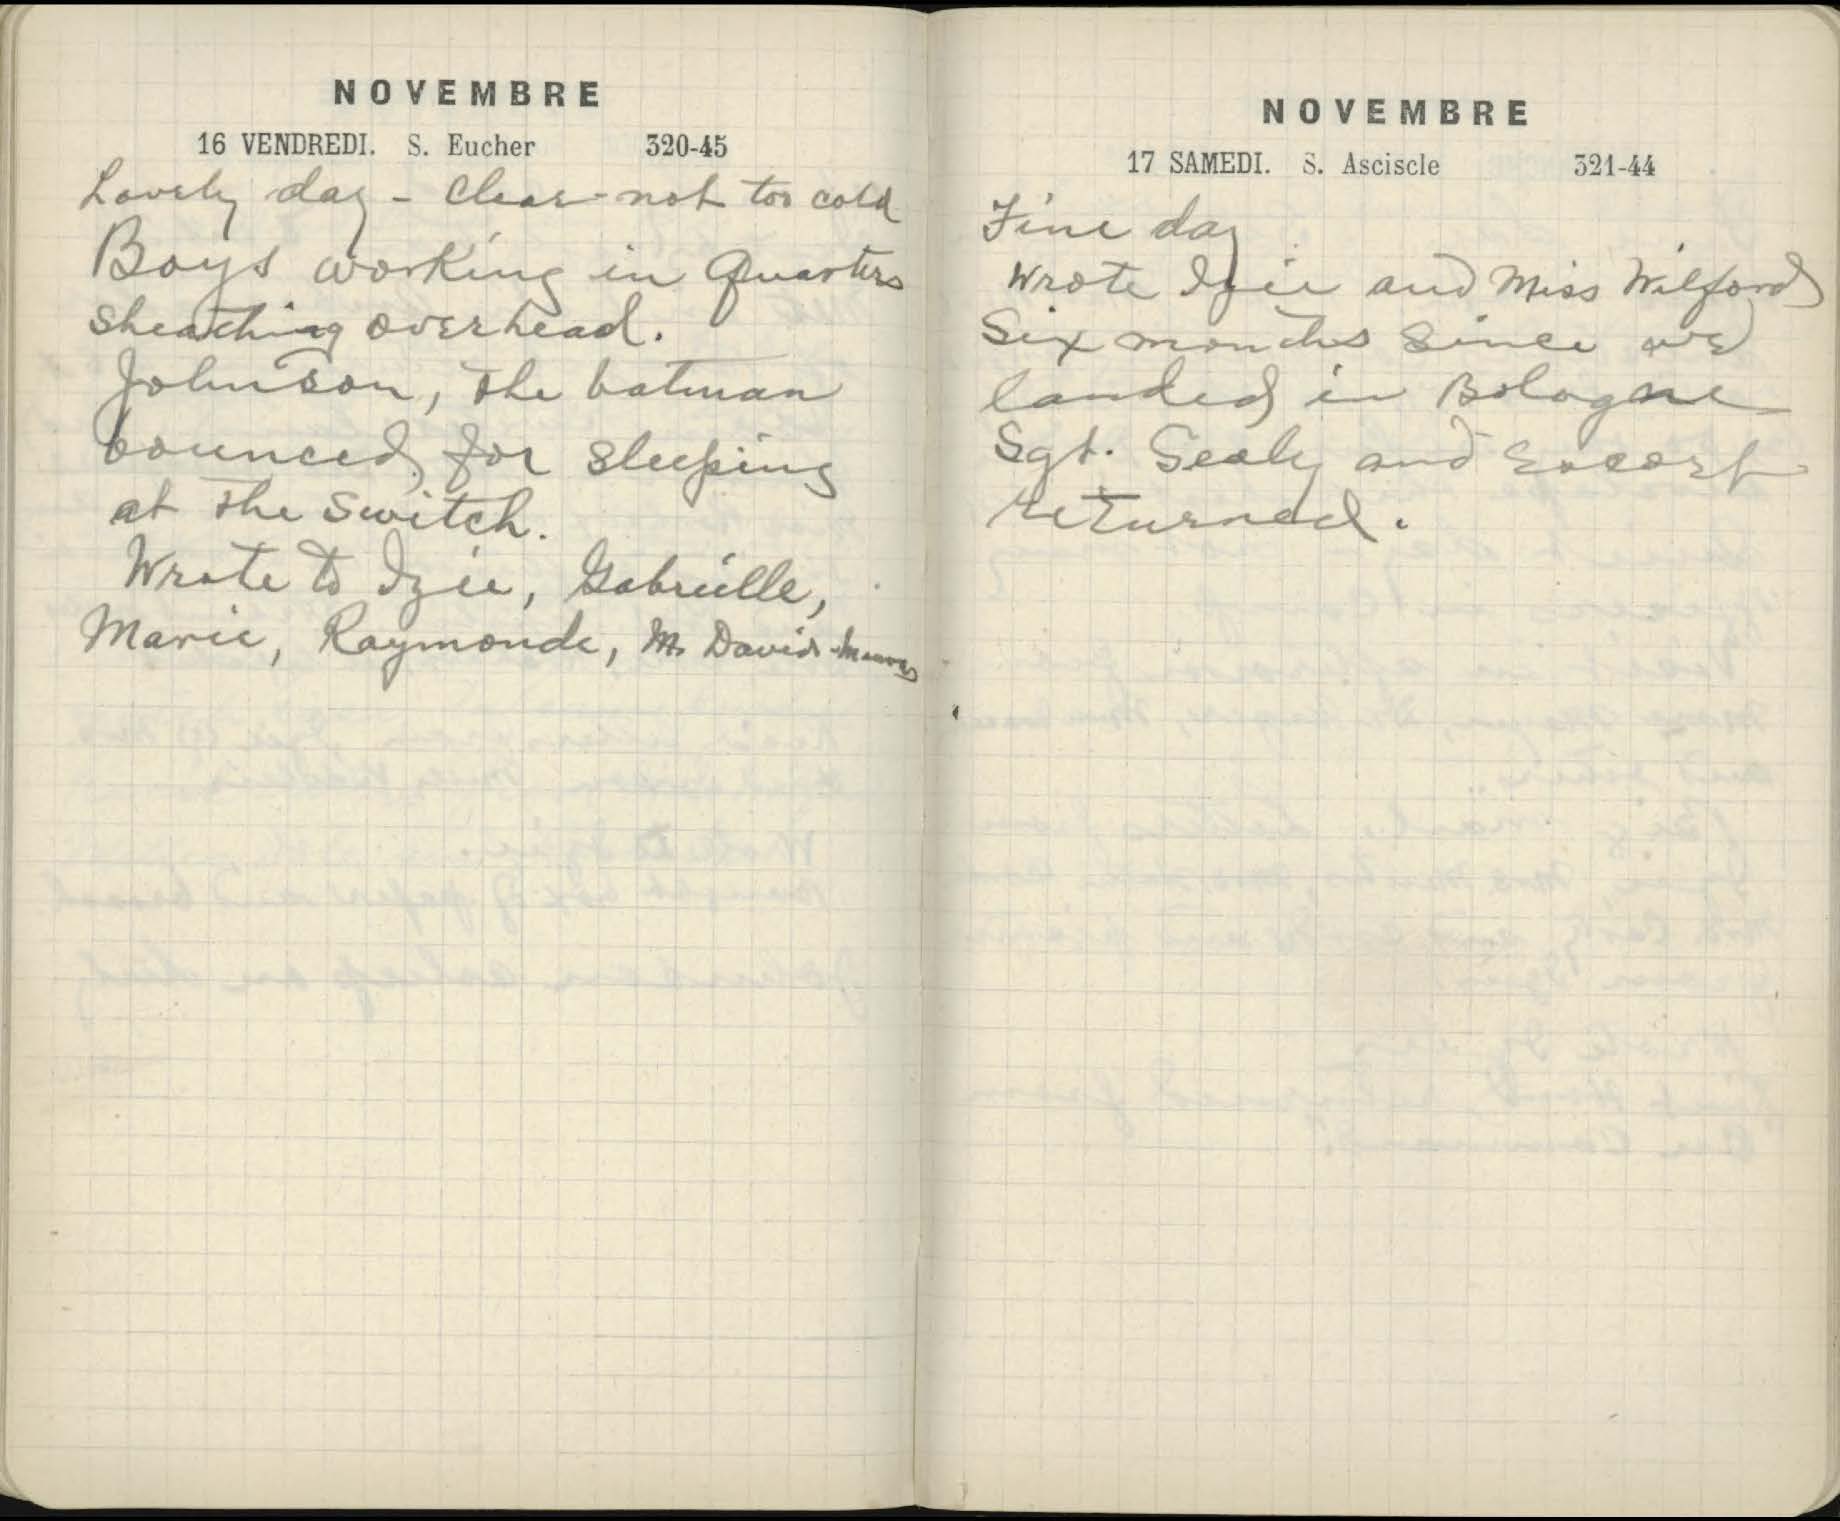 NOVEMBRE
16 VENDREDI. S. Eucher 320-45
Lovely day - Clear - not too cold
Boys working in Quarters
sheathing overhead.
Johnson, the batman
bounced for sleeping
at the switch.
Wrote to Izie, Gabrielle,
Marie, Raymonde, M. David
NOVEMBRE
17 SAMEDI. S. Asciscle 321-44
Fine day
Wrote Izie and Miss Wilford
Six months since we
landed in Bologne
Sgt. Sealy and Escort
returned.